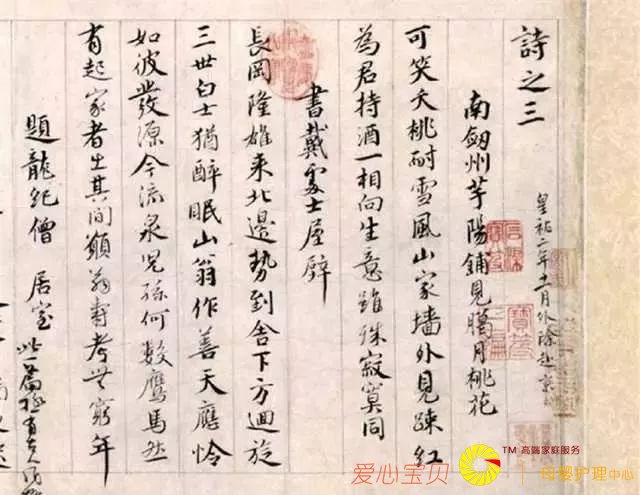 詩之三
皇祐二年十一月外除赴京
南劔州芋陽鋪見臘月桃花
可笑夭桃耐雪風山家墻外見疎紅
為君持酒一相向生意雖殊寂寞同
書戴處士屋壁
長岡隆雄來北邊勢到舍下方迴旋
三世白士猶醉眠山翁作善天應憐
如彼發源今流泉兒孫何數鷹馬然
有起家者出其間願翁壽考無窮年
題龍紀僧居室
此一篇極有古
爱心宝贝
TM 高端家庭服务
母婴护理中心